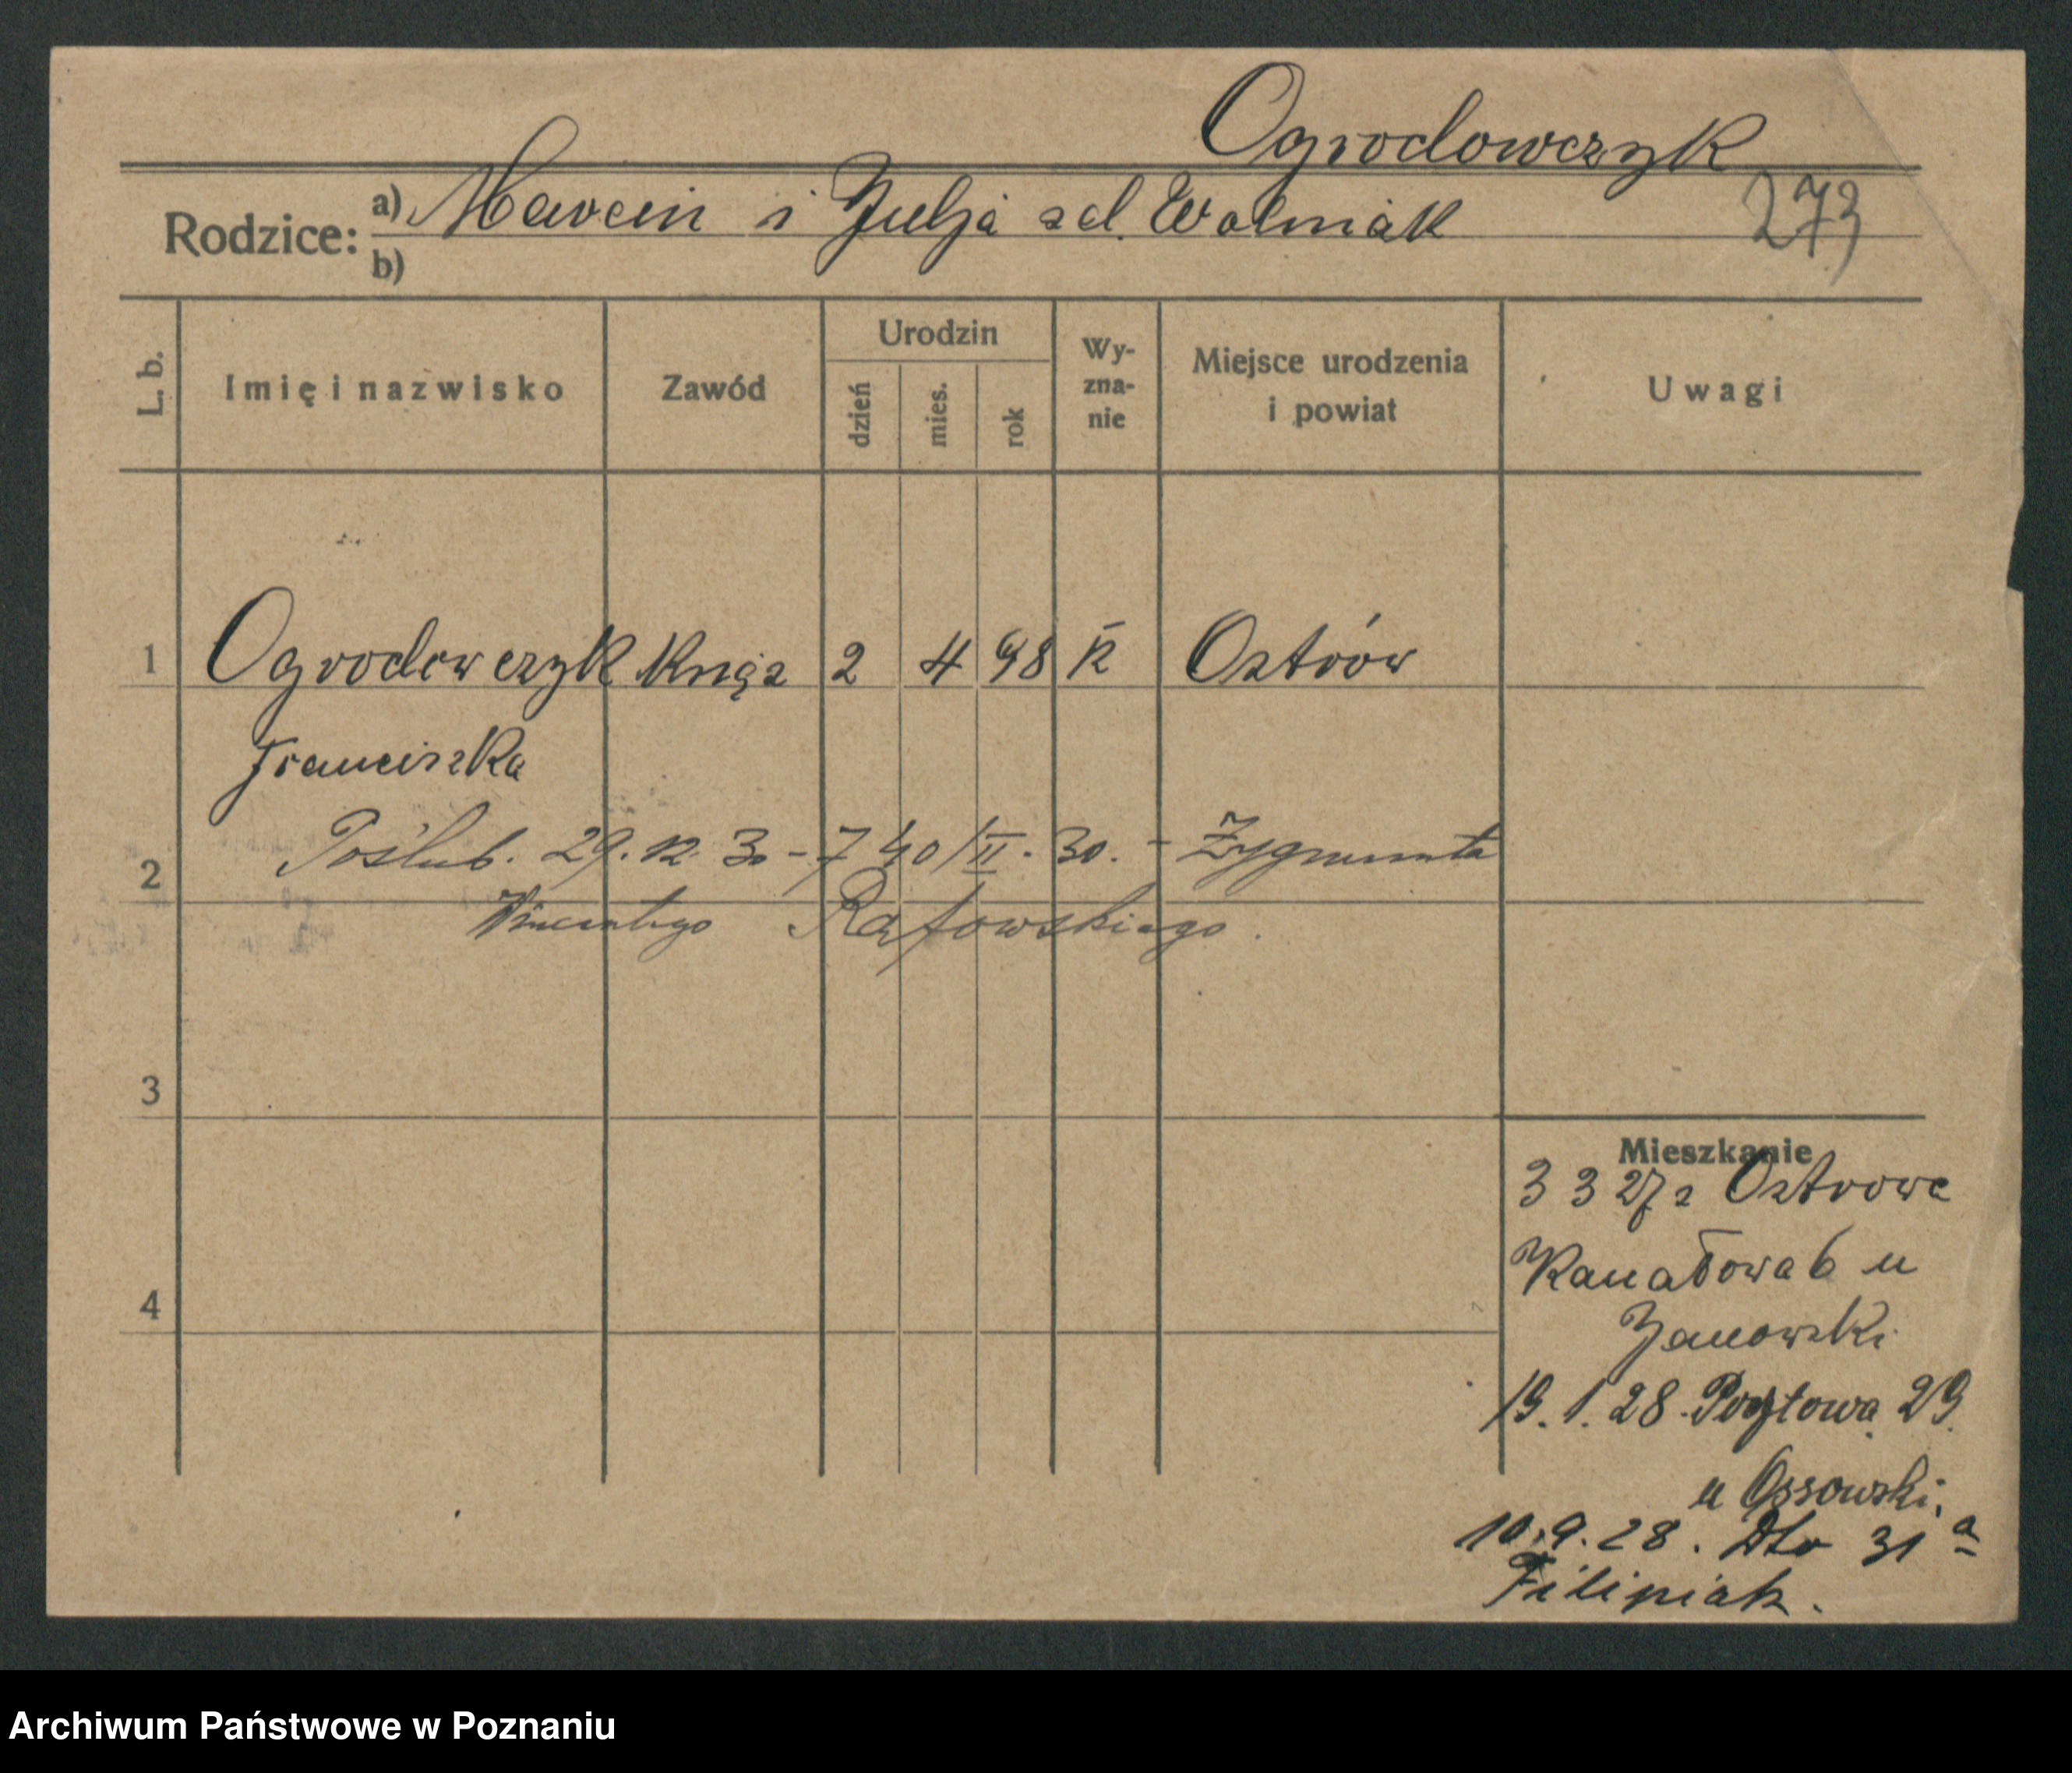 Ogrodowczyk
Rodzice: a) Marcin i Julja zd. Wolniak 273
b)
L. b. Imię i nazwisko Zawód Urodzin dzień mies. rok Wy-zna-nie Miejsce urodzenia i powiat Uwagi
1 Ogrodowczyk 2 4 98 k Ostrów
Franciszka
2 Poślub. 29. 12. 30 - 740/II. 30. - Zygmunta
Wincentego Ratowskiego.
3
Mieszkanie
3 3 27 z Ostrowa
Kanałowa 6 u
4
Janowski
19. 1. 28. Pocztowa 29.
u Ossowski.
10.9.28. Dto 31 a
Filipiak.
Archiwum Państwowe w Poznaniu